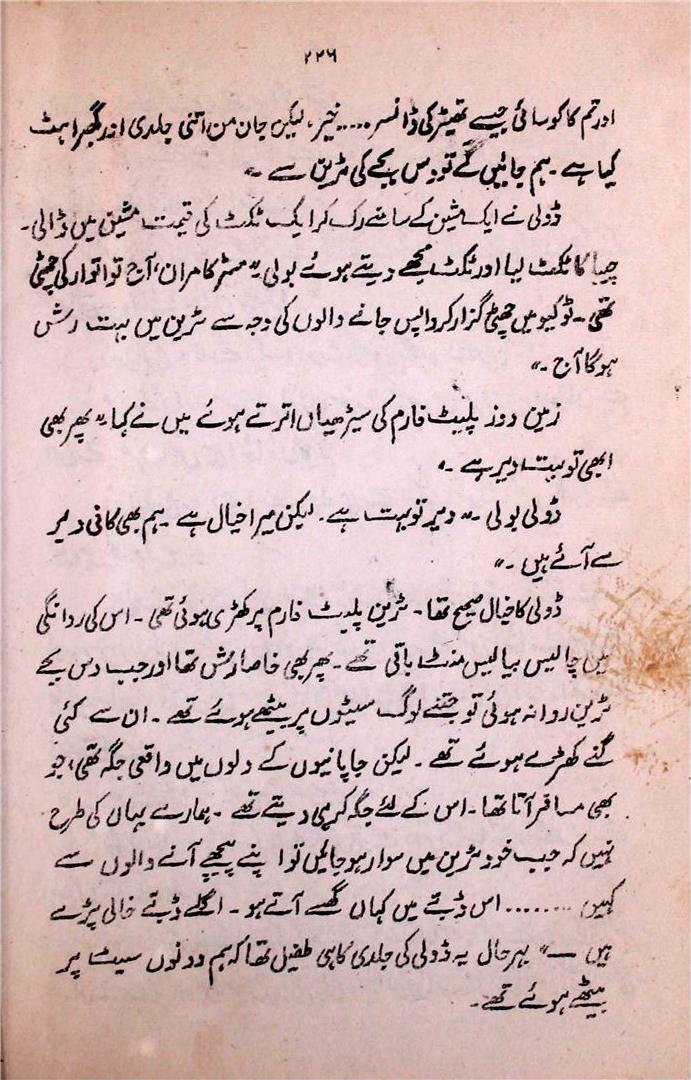 ۲۲۶
اور تم کاکوسائی جیسے تھیٹر کی ڈانسر ..... خیر، لیکن جان من اتنی جلدی اور گھبراہٹ
کیا ہے ۔ ہم جائیں گے تو دس بجے کی ٹرین سے ۔"
ڈولی نے ایک مشین کے سامنے رک کر ایک ٹکٹ کی قیمت مشین میں ڈالی ۔
چیبا کا ٹکٹ لیا اور ٹکٹ مجھے دیتے ہوئے بولی "مسٹر کامران، آج تو اتوار کی چھٹی
تھی ۔ ٹوکیو میں چھٹی گزار کر واپس جانے والوں کی وجہ سے ٹرین میں بہت رش
ہو گا آج ۔"
زمین دوز پلیٹ فارم کی سیڑھیاں اترتے ہوئے میں نے کہا "پھر بھی
ابھی تو بہت دیر ہے ۔"
ڈولی بولی ۔ "دیر تو بہت ہے ۔ لیکن میرا خیال ہے ۔ ہم بھی کافی دیر
سے آئے ہیں ۔"
ڈولی کا خیال صحیح تھا ۔ ٹرین پلیٹ فارم پر کھڑی ہوئی تھی ۔ اس کی روانگی
میں چالیس بیالیس منٹ باقی تھے ۔ پھر بھی خاصا رش تھا اور جب دس بجے
ٹرین روانہ ہوئی تو جتنے لوگ سیٹوں پر بیٹھے ہوئے تھے ۔ ان سے کئی
گنے کھڑے ہوئے تھے ۔ لیکن جاپانیوں کے دلوں میں واقعی جگہ تھی، جو
بھی مسافر آتا تھا ۔ اس کے لئے جگہ کر ہی دیتے تھے ۔ ہمارے یہاں کی طرح
نہیں کہ جب خود ٹرین میں سوار ہو جائیں تو اپنے پیچھے آنے والوں سے
کہیں ........ اس ڈبے میں کہاں گھسے آتے ہو ۔ اگلے ڈبے خالی پڑے
ہیں —" بہر حال یہ ڈولی کی جلدی کا ہی طفیل تھا کہ ہم دونوں سیٹ پر
بیٹھے ہوئے تھے ۔